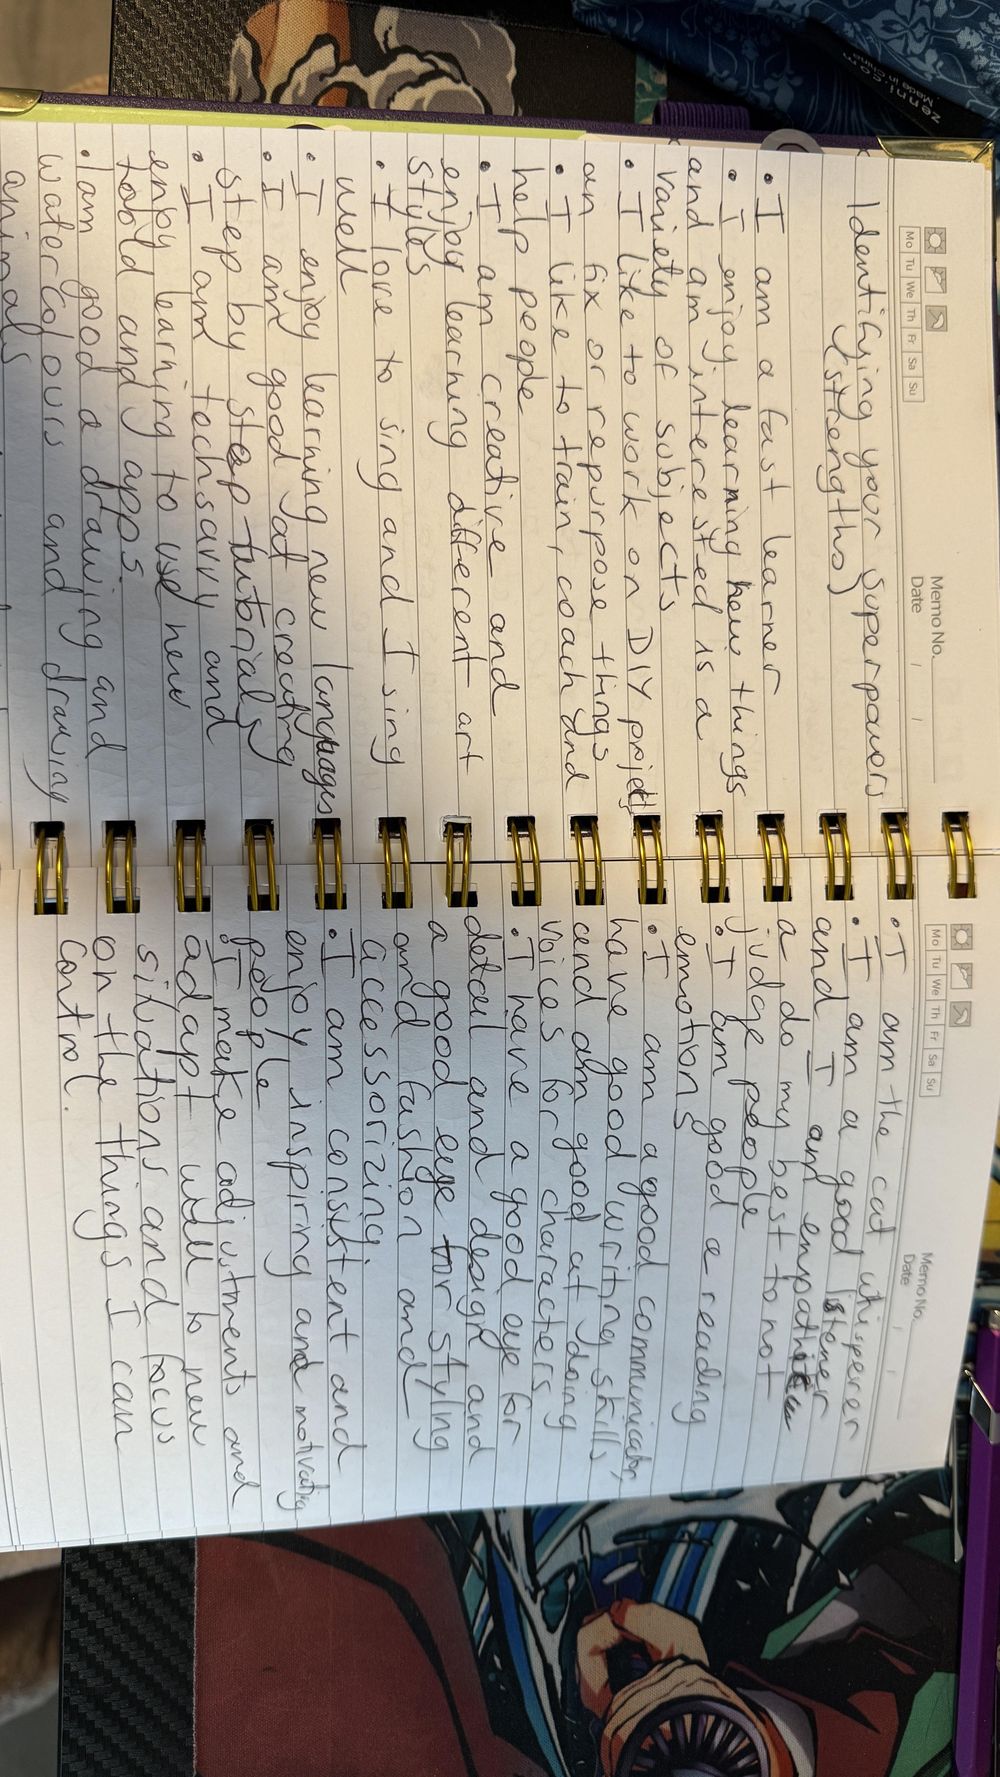 Memo No.
Date / /
Mo Tu We Th Fr Sa Su
Identifying your superpowers
(strengths)
• I am a fast learner
• I enjoy learning new things
and am interested is a
variety of subjects
• I like to work on DIY projects
an fix or repurpose things
• I like to train, coach and
help people
• I am creative and
enjoy learning different art
styles
• I love to sing and I sing
well
• I enjoy learning new languages
• I am good at creating
step by step tutorials
• I am tech savvy and
enjoy learning to use new
and apps.
• I am good a drawing and
watercolours and drawing
animals
Memo No.
Date / /
Mo Tu We Th Fr Sa Su
• I am the cat whisperer
• I am a good listener
and I am empathic
a do my best to not
judge people
• I am good a reading
emotions
• I am a good communicator,
have good writing skills
and am good at doing
voices for characters
• I have a good eye for
detail and design and
a good eye for styling
and fashion and
accessorizing.
• I am consistent and
enjoy inspiring and motivating
people
• I make adjustments and
adapt well to new
situations and focus
on the things I can
control.
zenni
.com
Made in China